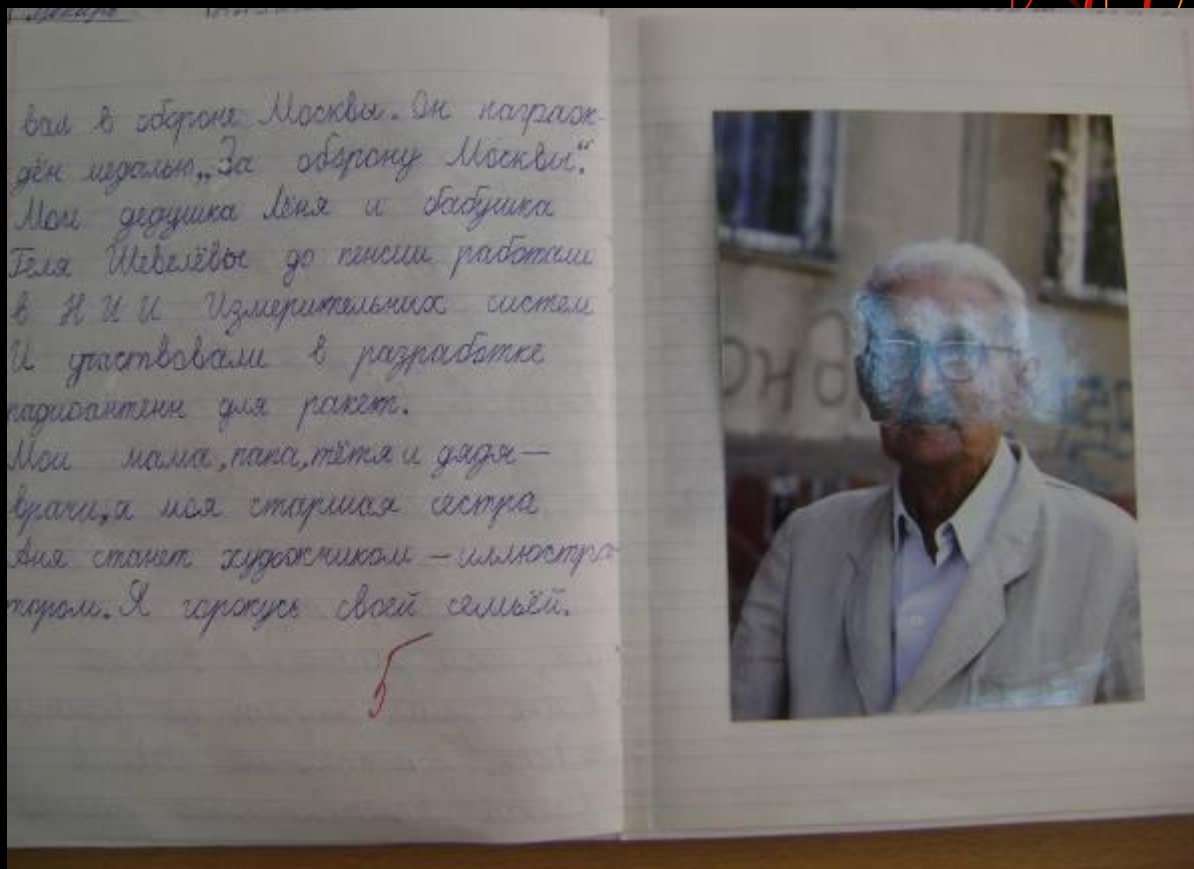 вал в обороне Москвы. Он награж-
дён медалью „За оборону Москвы“.
Мои дедушка Лёня и бабушка
Геля Шевелёвы до пенсии работали
в НИИ Измерительных систем
И участвовали в разработке
радиоантенн для ракет.
Мои мама, папа, тётя и дядя —
врачи, а моя старшая сестра
Аня станет художником — иллюстра-
тором. Я горжусь своей семьёй.
5